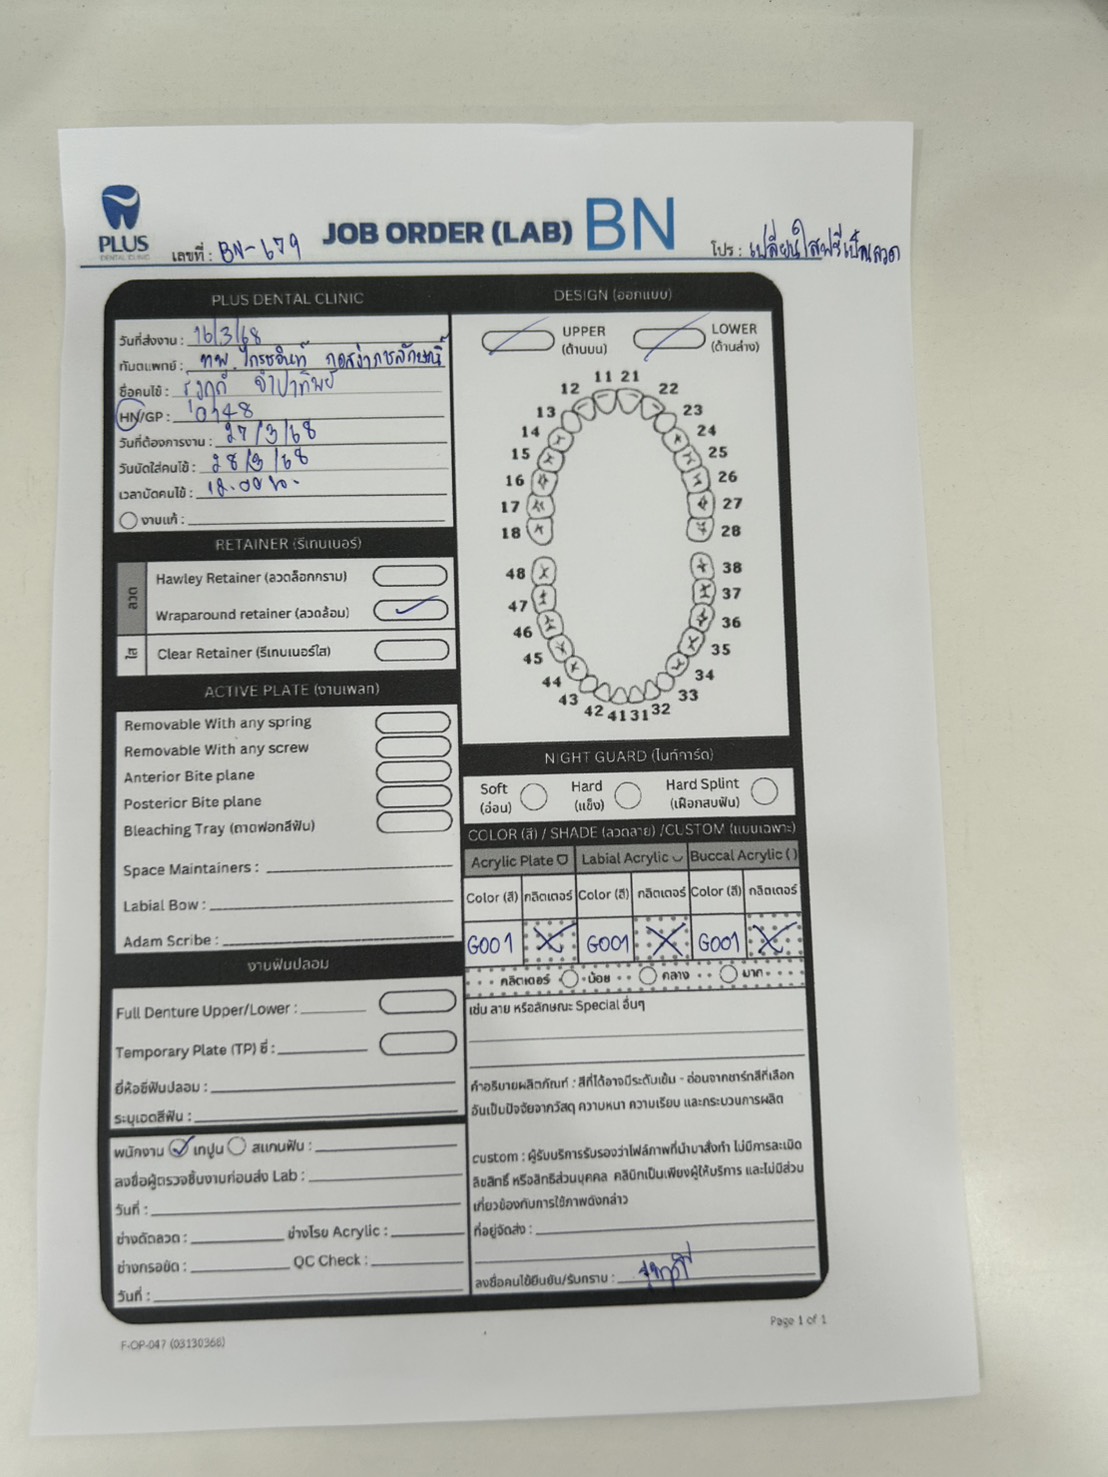 PLUS
DENTAL CLINIC
เลขที่ : BN-679
JOB ORDER (LAB) BN
โปร : เปลี่ยนใสฟรีเป็นลวด
PLUS DENTAL CLINIC
วันที่ส่งงาน : 16/3/68
ทันตแพทย์ : ทพ.
ชื่อคนไข้ :
HN/GP : 0148
วันที่ต้องการงาน : 27/3/68
วันนัดใส่คนไข้ : 28/3/68
เวลานัดคนไข้ : 18.00 น.
งานแก้ :
RETAINER (รีเทนเนอร์)
ลวด
Hawley Retainer (ลวดล็อกกราม)
Wraparound retainer (ลวดล้อม)
ใส
Clear Retainer (รีเทนเนอร์ใส)
ACTIVE PLATE (งานเพลท)
Removable With any spring
Removable With any screw
Anterior Bite plane
Posterior Bite plane
Bleaching Tray (ถาดฟอกสีฟัน)
Space Maintainers :
Labial Bow :
Adam Scribe :
งานฟันปลอม
Full Denture Upper/Lower :
Temporary Plate (TP) ซี่ :
ยี่ห้อซี่ฟันปลอม :
ระบุเฉดสีฟัน :
พนักงาน เทปูน สแกนฟัน :
ลงชื่อผู้ตรวจชิ้นงานก่อนส่ง Lab :
วันที่ :
ช่างดัดลวด : ช่างโรย Acrylic :
ช่างกรอขัด : QC Check :
วันที่ :
DESIGN (ออกแบบ)
UPPER
(ด้านบน)
LOWER
(ด้านล่าง)
11 21
12 22
13 23
14 24
15 25
16 26
17 27
18 28
48 38
47 37
46 36
45 35
44 34
43 33
42 41 31 32
NIGHT GUARD (ไนท์การ์ด)
Soft
(อ่อน)
Hard
(แข็ง)
Hard Splint
(เฝือกสบฟัน)
COLOR (สี) / SHADE (ลวดลาย) /CUSTOM (แบบเฉพาะ)
Acrylic Plate Labial Acrylic Buccal Acrylic ( )
Color (สี) กลิตเตอร์ Color (สี) กลิตเตอร์ Color (สี) กลิตเตอร์
G001 X G001 X G001 X
กลิตเตอร์ น้อย กลาง มาก
เช่น ลาย หรือลักษณะ Special อื่นๆ
คำอธิบายผลิตภัณฑ์ : สีที่ได้อาจมีระดับเข้ม - อ่อนจากชาร์ทสีที่เลือก
อันเป็นปัจจัยจากวัสดุ ความหนา ความเรียบ และกระบวนการผลิต
custom : ผู้รับบริการรับรองว่าไฟล์ภาพที่นำมาสั่งทำ ไม่มีการละเมิด
ลิขสิทธิ์ หรือสิทธิส่วนบุคคล คลินิกเป็นเพียงผู้ให้บริการ และไม่มีส่วน
เกี่ยวข้องกับการใช้ภาพดังกล่าว
ที่อยู่จัดส่ง :
ลงชื่อคนไข้ยืนยัน/รับทราบ :
Page 1 of 1
F-OP-047 (03130368)